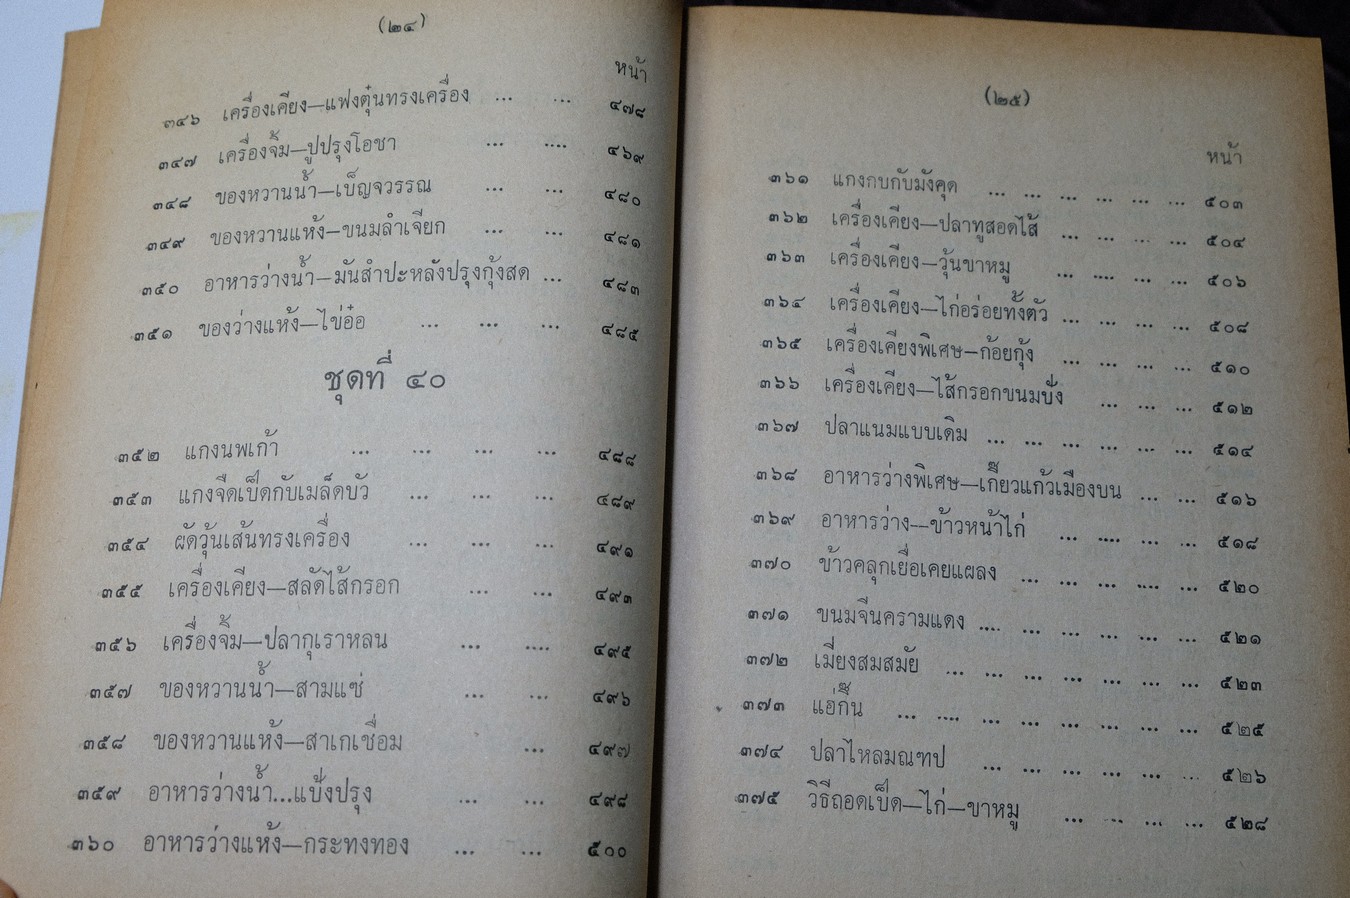 (๒๔)
หน้า
๓๔๖ เครื่องเคียง—แฟงตุ๋นทรงเครื่อง ... ... ๔๗๘
๓๔๗ เครื่องจิ้ม—ปูปรุงโอชา ... .... ๔๖๙
๓๔๘ ของหวานน้ำ—เบ็ญจวรรณ ... ... ๔๘๐
๓๔๙ ของหวานแห้ง—ขนมลำเจียก ... ... ๔๘๑
๓๕๐ อาหารว่างน้ำ—มันสำปะหลังปรุงกุ้งสด ... ๔๘๓
๓๕๑ ของว่างแห้ง—ไข่อ๋อ ... ... ... ๔๘๕
ชุดที่ ๔๐
๓๕๒ แกงนพเก้า ... ... ... ... ๔๘๘
๓๕๓ แกงจืดเป็ดกับเมล็ดบัว ... ... ... ๔๘๙
๓๕๔ ผัดวุ้นเส้นทรงเครื่อง ... ... ... ๔๙๑
๓๕๕ เครื่องเคียง—สลัดไส้กรอก ... ... ๔๙๓
๓๕๖ เครื่องจิ้ม—ปลากุเราหลน ... .... ๔๙๕
๓๕๗ ของหวานน้ำ—สามแซ่ ... ... ๔๙๖
๓๕๘ ของหวานแห้ง—สาเกเชื่อม ... ๔๙๗
๓๕๙ อาหารว่างน้ำ...แป้งปรุง ... ... ๔๙๘
๓๖๐ อาหารว่างแห้ง—กระทงทอง ... ... ๕๐๐
(๒๕)
หน้า
๓๖๑ แกงกบกับมังคุด ... ... ... ... ... ... ๕๐๓
๓๖๒ เครื่องเคียง—ปลาทูสอดไส้ ... ... ... ... ๕๐๔
๓๖๓ เครื่องเคียง—วุ้นขาหมู ... .... ... ... ๕๐๖
๓๖๔ เครื่องเคียง—ไก่อร่อยทั้งตัว ... ... ... ... ๕๐๘
๓๖๕ เครื่องเคียงพิเศษ—ก้อยกุ้ง ... ... ... ... ๕๑๐
๓๖๖ เครื่องเคียง—ไส้กรอกขนมปัง ... ... ... ๕๑๒
๓๖๗ ปลาแนมแบบเดิม ... ... ... ... ... ... ๕๑๔
๓๖๘ อาหารว่างพิเศษ—เกี๊ยวแก้วเมืองบน ... ... ๕๑๖
๓๖๙ อาหารว่าง—ข้าวหน้าไก่ ... .... ... ... ๕๑๘
๓๗๐ ข้าวคลุกเยื่อเคยแผลง ... ... .... ... ... ๕๒๐
๓๗๑ ขนมจีนครามแดง .... ... ... ... ... ... ๕๒๑
๓๗๒ เมี่ยงสมสมัย ... ... ... ... ... ... ... ๕๒๓
๓๗๓ แฮ่กึ๊น ... .... ... ... ... ... ... ... ๕๒๕
๓๗๔ ปลาไหลมณฑป ... ... ... ... ... ... ๕๒๖
๓๗๕ วิธีถอดเป็ด—ไก่—ขาหมู ... ... ... ... ๕๒๘